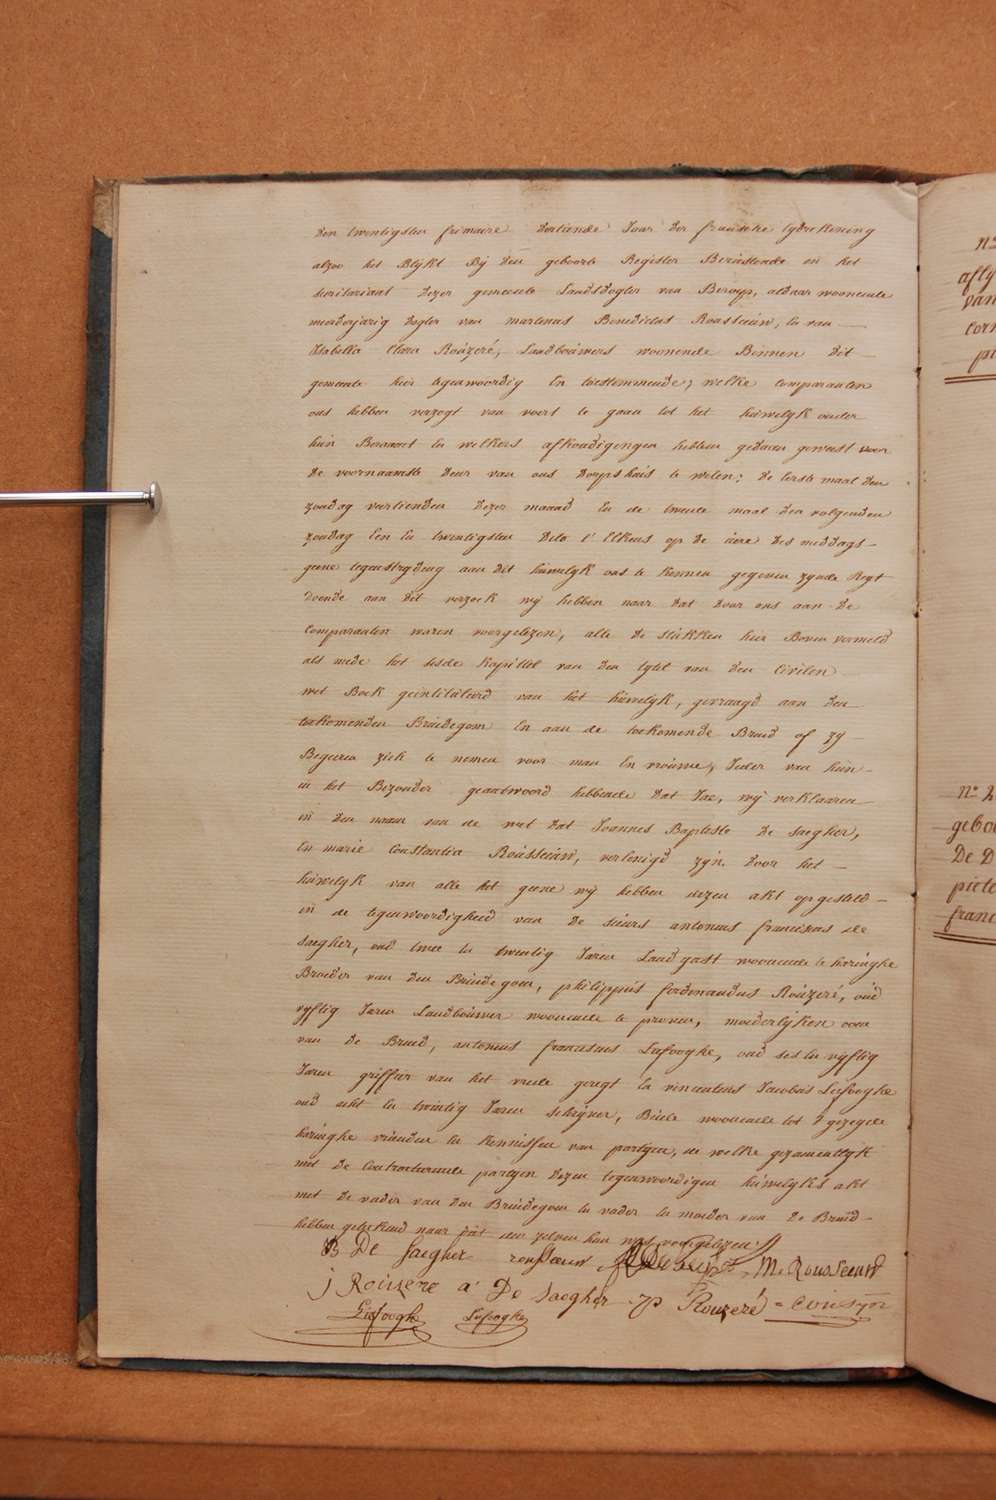 den twintigsten frimaire dertiende Jaar der fransche tydrekening
alzoo het Blykt By den geboorte Register Berustende in het
secritariaat dezer gemeente Landsdogter van Beroep, aldaar woonende
meerderjarig dogter van martinus Benedictus Rousseeuw, En van
Isabella Clara Roúzeré, Landboúwers woonende Binnen dit
gemeente hier tegenwoordig En toestemmende; welke comparanten
ons hebben verzogt van voort te gaan tot het húwelyk onder
hun Beraamt En welkers afkondigingen hebben gedaan geweest voor
de voornaamste deur van ons dorpshuis te weten: de Eerste maal den
zondag veertienden dezer maand En de tweede maal den volgenden
zondag Een En twintigsten dito t' Elkens op de úere des middags
geene tegenstrydeng aan dit húwelyk ons te kennen gegeven zynde Regt
doende aan dit verzoek wy hebben naar dat door ons aan de
comparanten waren voorgelezen, alle de stúkken hier Boven vermeld
als mede het sesde kapittel van den tytel van den Civilen
wet Boek geintituleerd van het húwelyk, gevraagd aan den
toekomenden Brúidegom En aan de toekomende Bruid of zy
Begeeren zich te nemen voor man En vroúwe; Ieder van hún
in het Bezonder geantwoord hebbende dat Jae, wy verklaaren
in den naam van de wet dat Joannes Baptiste De saegher,
En marie Constantia Roússeeúw, verEenigd zyn door het
húwelyk van alle het geene wy hebben dezen akt opgesteld
in de tegenwoordigheid van de sieurs antonius franciscus de
saegher, oud twee En twintig Jaren Landgast woonende te haringhe
Broeder van den Brúidegom, philippús ferdinandus Roúzeré, oúd
vyftig Jaren Landboúwer woonende te proven, moederlyken oom
van de Bruid, antonius franciscus Lefooghe, oud ses En vyftig
Jaren griffier van het vrede geregt En vincentius Jacobus Lefooghe
oud acht En twintig Jaren schryver, Beide woonende tot 't gezegde
haringhe vrienden En kennissen van partyen, de welke gezamentlyk
met de Contracteerende partyen dezen tegenwoordigen húwelyks akt
met de vader van den Brúidegom En vader En moeder van de Bruid
hebben geteekend naar dat een zelven hun was voorgelezen.
B De Saegher rousseeuw M. Rousseeuw
j Roúzere a' De Saegher p Rouzeré
Lefooghe Lefooghe
N°
N° 2